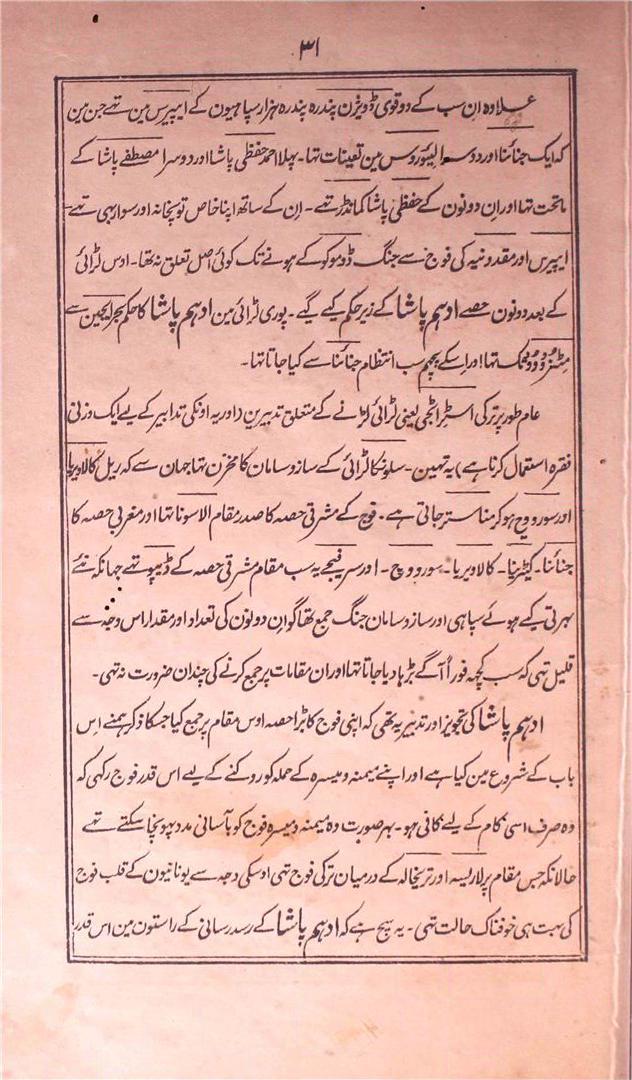 ۳۱
علاوہ ان سب کے دو قوی ڈویژن پندرہ پندرہ ہزار سپاہیون کے ایپیرس مین تھے جن مین
کہ ایک جنائنا اور دوسرا لیئوروس مین تعینات تھا۔ پہلا احمد حفظی پاشا اور دوسرا مصطفے پاشا کے
ماتحت تھا اور ان دونون کے حفظی پاشا کمانڈر تھے۔ ان کے ساتھ اپنا خاص توپخانہ اور سوار بھی تھے
ایپیرس اور مقدونیہ کی فوج سے جنگ ڈوموکو کے ہونے تک کوئی اصل تعلق نہ تھا۔ اوس لڑائی
کے بعد دونون حصے ادہم پاشا کے زیر حکم کیے گیے۔ پوری لڑائی مین ادہم پاشا کا حکم بحر ایجین سے
تھا اور اسکے پچھم سب انتظام جنائنا سے کیا جاتا تھا۔
عام طور پر ترکی اسٹراٹجی یعنی لڑائی لڑانے کے متعلق تدبیرین (اور یہ اونکی تدابیر کے لیے ایک وزنی
فقرہ استعمال کرنا ہے) یہ تھین۔ سلونکا لڑائی کے ساز و سامان کا مخزن تھا جہان سے کہ ریل کالاویریا
اور سورووچ ہو کر مناستر جاتی ہے۔ فوج کے مشرقی حصہ کا صدر مقام الاسونا تھا اور مغربی حصہ کا
جنائنا۔ کیٹرینا۔ کالاویریا۔ سورووچ۔ اور سرفیجے یہ سب مقام مشرقی حصہ کے ڈیپو تھے جہانکہ نئے
بہرتی کیے ہوئے سپاہی اور ساز و سامان جنگ جمع تھا گو ان دونون کی تعداد اور مقدار اس وجہ سے
قلیل تہی کہ سب کچہ فوراً آگے بڑہا دیا جاتا تھا اور ان مقامات پر جمع کرنے کی چندان ضرورت نہ تہی۔
ادہم پاشا کی تجویز اور تدبیر یہ تھی کہ اپنی فوج کا بڑا حصہ اوس مقام پر جمع کیا جسکا ذکر ہمنے اِس
باب کے شروع مین کیا ہے اور اپنے میمنہ و میسرہ کے حملہ کو روکنے کے لیے اس قدر فوج رکہی کہ
وہ صرف اسی کام کے لیے کافی ہو۔ بہر صورت وہ میمنہ و میسرہ فوج کو بآسانی مدد پہونچا سکتے تھے
حالانکہ جس مقام پر لاریسہ اور تریخالہ کے درمیان ترکی فوج تہی اوسکی وجہ سے یونانیون کے قلب فوج
کی بہت ہی خوفناک حالت تہی۔ یہ سچ ہے کہ ادہم پاشا کے رسد رسانی کے راستون مین اس قدر